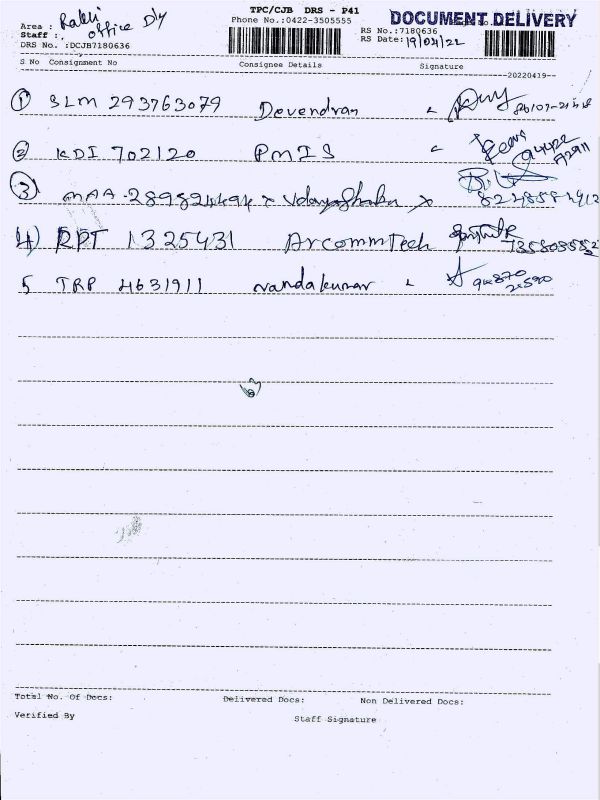 TPC/CJB DRS - P41
DOCUMENT DELIVERY
Phone No.:0422-3505555
Area : Rakki
Staff : office D/y
RS No.:7180636
RS Date:19/04/22
DRS No. :DCJB7180636
S No Consignment No Consignee Details Signature
20220419
1 SLM 293763079 Devendran
2 KDI 702120 PMIS
3 MAA 289824494
4) RPT 1325431 ArcommTech
5 TRP 4631911 Nandakumar
Total No. Of Docs: Delivered Docs: Non Delivered Docs:
Verified By Staff Signature